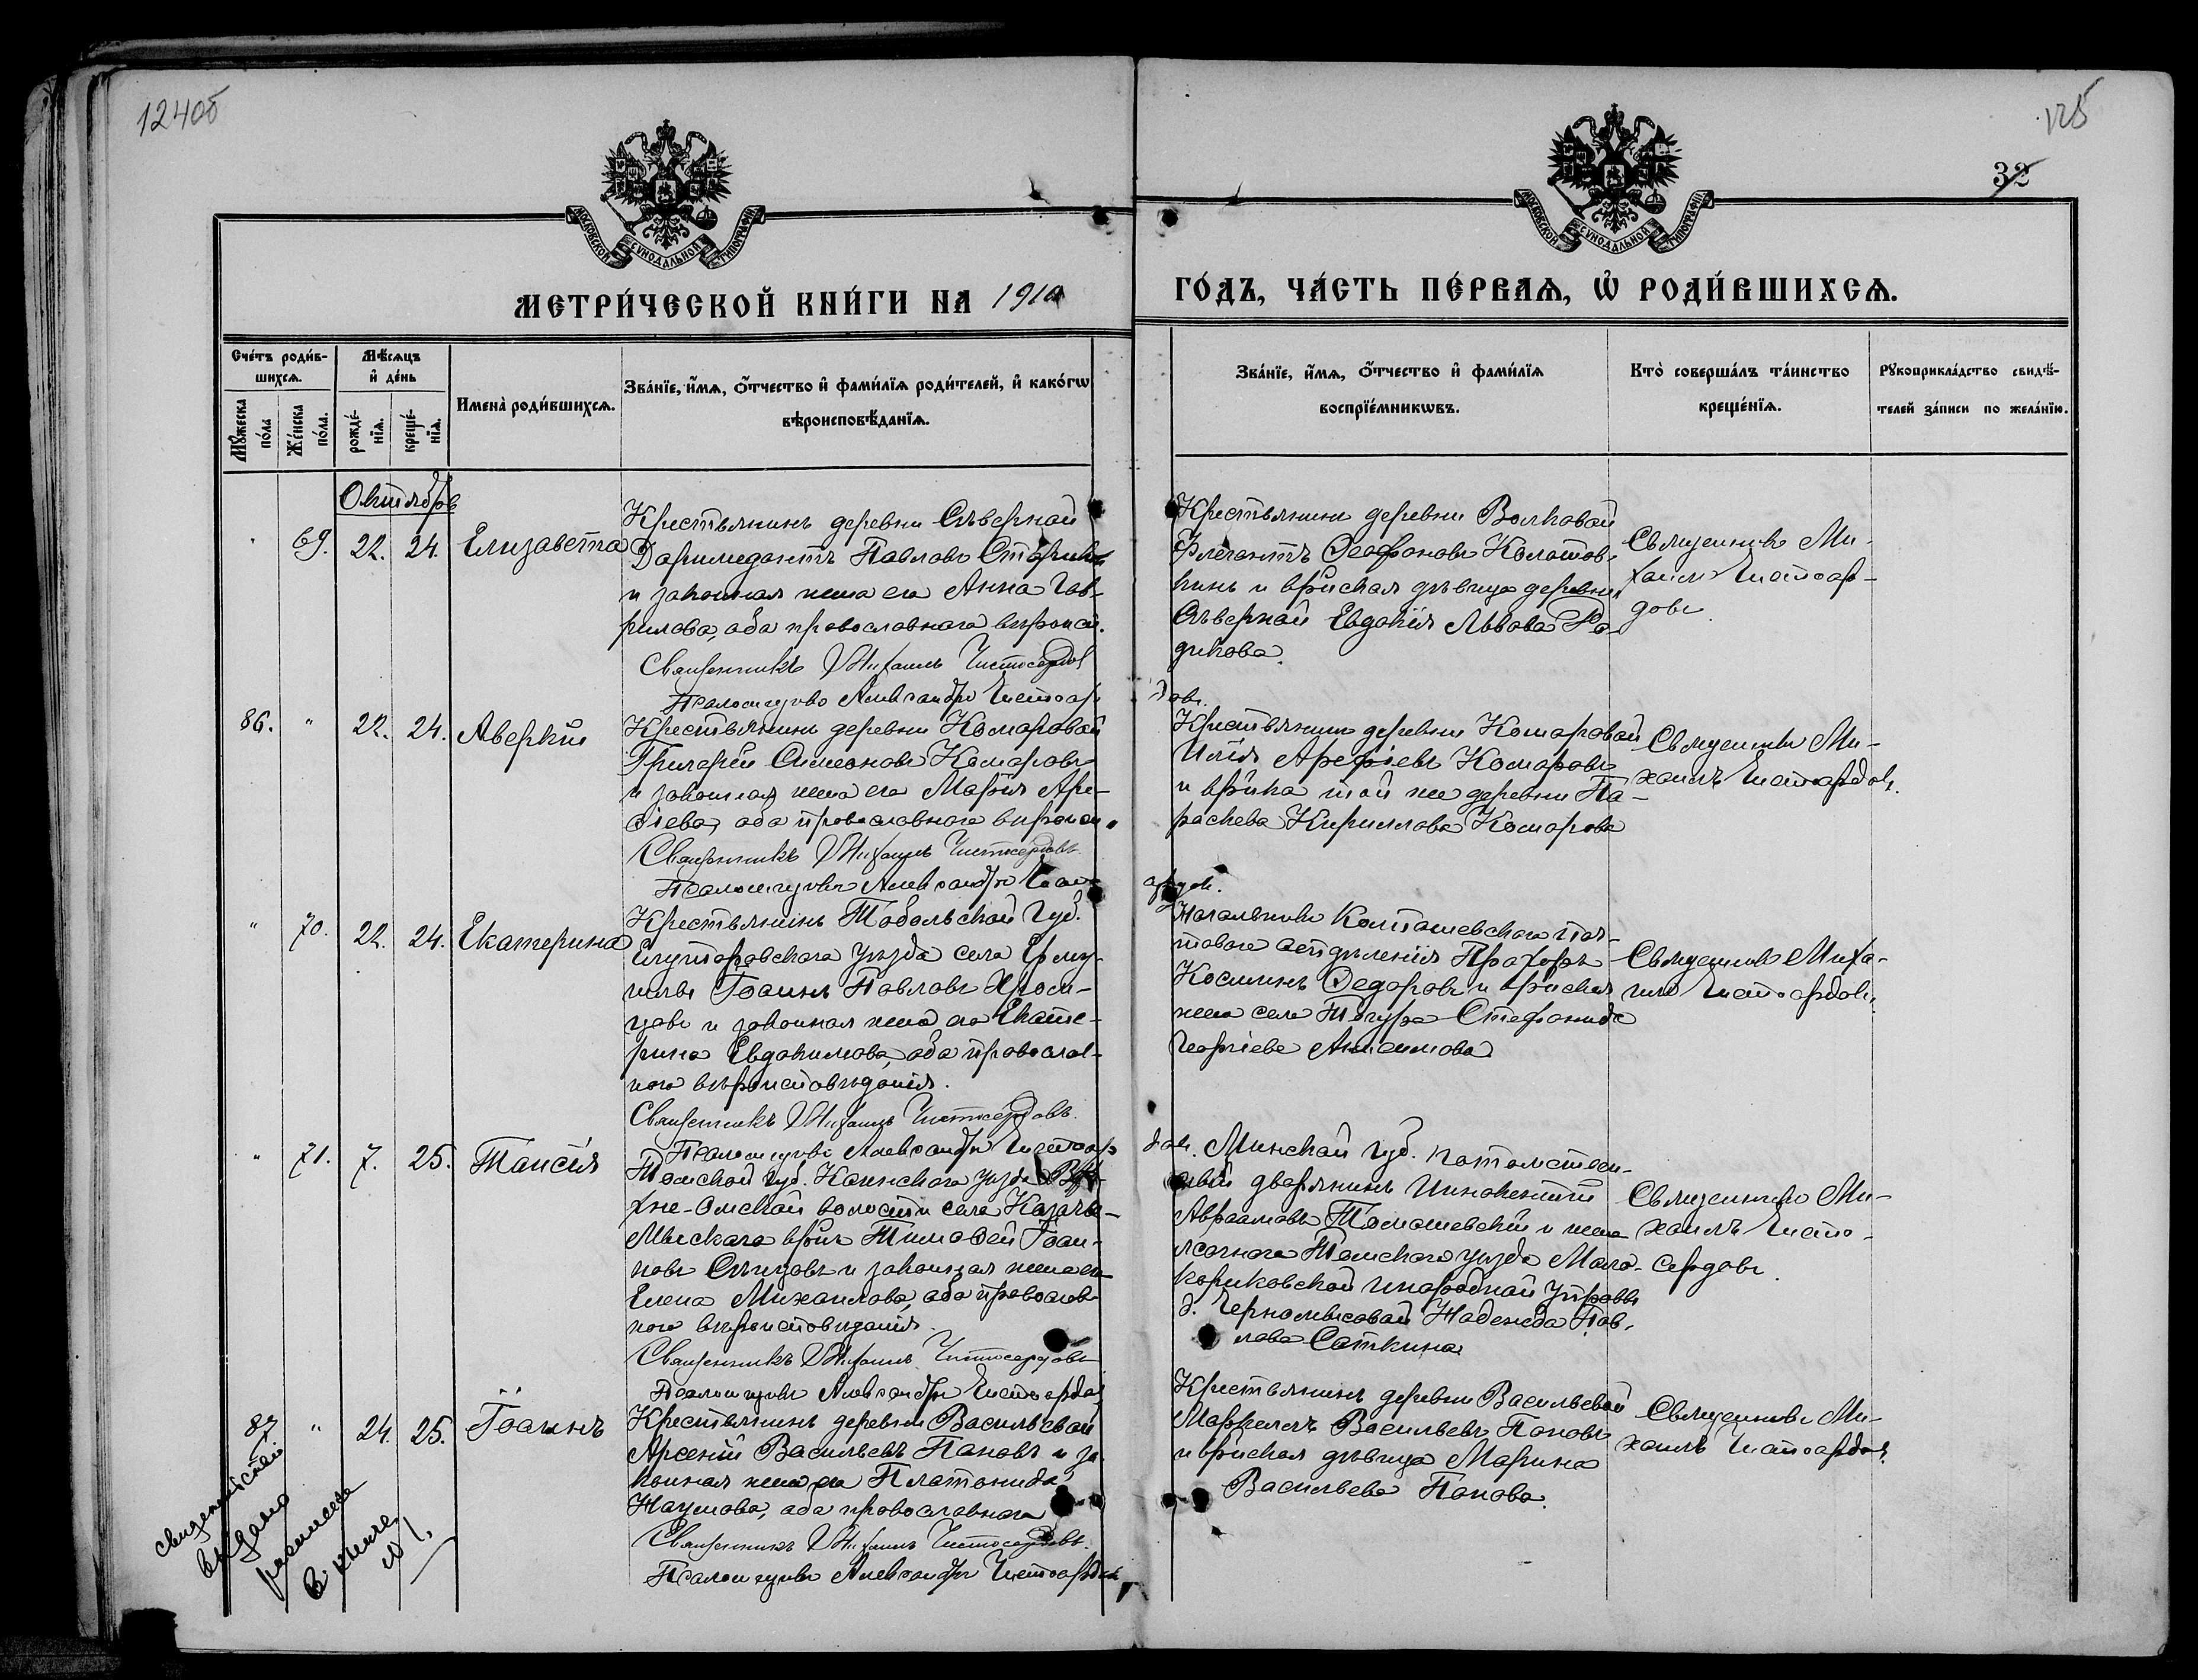 124об
125
32
МОСКОВСКОЙ СѴНОДАЛЬНОЙ ТИПОГРАФІИ
МОСКОВСКОЙ СѴНОДАЛЬНОЙ ТИПОГРАФІИ
МЕТРИ́ЧЕСКОЙ КНИ́ГИ НА 1910
ГО́ДЪ, ЧА́СТЬ ПЕ́РВАѦ, Ѡ҆ РОДИ́ВШИХСѦ.
Сче́тъ роди́в-
шихсѧ.
Мꙋ́жеска по́ла
Же́нска по́ла.
Мѣ́сѧцъ
и҆ де́нь
рожде́-нїѧ.
креще́-нїѧ.
Имена̀ роди́вшихсѧ.
Зва́нїе, и҆́мѧ, ѻ҆́тчество и҆ фами́лїѧ роди́телей, и҆ како́гѡ
вѣроисповѣ́данїѧ.
Зва́нїе, и҆́мѧ, ѻ҆́тчество и҆ фами́лїѧ
воспрїе́мникѡвъ.
Кто̀ соверша́лъ та́инство
креще́нїѧ.
Рꙋкоприкла́дство свидѣ́-
телей за́писи по жела́нїю.
Октябрь
69. 22. 24. Елизавета
Крестьянинъ деревни Сѣверной
Павловъ
и законная жена его Анна Гав-
рилова, оба православнаго вѣроисп.
Священникъ Михаилъ Чистосердовъ
Псаломщикъ Александръ Чистосер
довъ.
Крестьянинъ деревни Волковой
Флегонтъ Ѳеофановъ Колотов-
кинъ и кр҃нская дѣвица деревни
Сѣверной Евдокія Львова Ро-
дикова.
Священникъ Ми-
хаилъ Чистосер-
довъ.
86. " 22. 24. Аверкій
Крестьянинъ деревни Комаровой
Григорій Симеоновъ Комаровъ
и законная жена его Марія Аре-
ѳіева, оба православнаго вѣроисп.
Священникъ Михаилъ Чистосердовъ.
Псаломщикъ Александръ Чист-
сердовъ.
Крестьянинъ деревни Комаровой
Илія Арефіевъ Комаровъ
и кр҃нка той же деревни Па-
раскева Кириллова Комарова
Священникъ Ми-
хаилъ Чистосердовъ.
" 70. 22. 24. Екатерина
Крестьянинъ Тобольской губ.
Ялуторовскаго уѣзда села
Іоаннъ Павловъ
и законная жена его Екате-
рина Евдокимова, оба православ-
наго вѣроисповѣданія.
Священникъ Михаилъ Чистосердовъ.
Псаломщикъ Александръ Чистосер
довъ.
Начальникъ Колпашевскаго поч-
товаго отдѣленія Прохоръ
Косминъ Ѳедоровъ и кр҃нская
жена села Тогура Стефанида
Георгіева Анисимова.
Священникъ Миха-
илъ Чистосердовъ.
" 71. 7. 25. Таисія
Томской губ. Каинскаго уѣзда Вер-
хне-Омской волости села Казаче-
Мысскаго кр҃нъ Тимоѳей Іоан-
новъ и законная жена его
Елена Михаилова, оба православ-
наго вѣроисповѣданія.
Священникъ Михаилъ Чистосердовъ
Псаломщикъ Александръ Чистосердовъ
Минской губ. потомствен-
ный дворянинъ Иннокентій
Авраамовъ Томашевскій и жена
Томскаго уѣзда Мало-
кориковской инородной управы
д. Черномысовой Надежда Пав-
лова Саткина
Священникъ Ми-
хаилъ Чисто-
сердовъ.
87 " 24. 25. Іоаннъ
Крестьянинъ деревни Васильевой
Арсеній Васильевъ Пановъ и за
конная жена его Платонида
Наумова, оба православнаго
Священникъ Михаилъ Чистосердовъ.
Псаломщикъ Александръ Чистосердовъ
Крестьянинъ деревни Васильевой
Васильевъ Пановъ
и кр҃нская дѣвица Марина
Васильева Панова.
Священникъ Ми-
хаилъ Чистосердовъ.
выдано
въ книгѣ
№ 1.